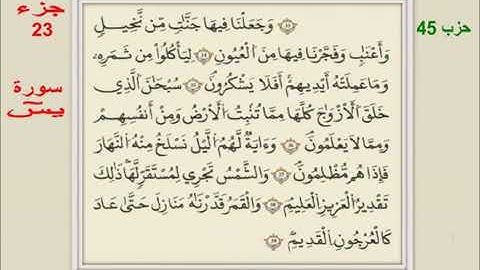 جزء
23
سورة
يس
حزب 45
وَجَعَلْنَا فِيهَا جَنَّاتٍ مِّن نَّخِيلٍ
وَأَعْنَابٍ وَفَجَّرْنَا فِيهَا مِنَ الْعُيُونِ ۝ لِيَأْكُلُوا مِن ثَمَرِهِ
وَمَا عَمِلَتْهُ أَيْدِيهِمْ أَفَلَا يَشْكُرُونَ ۝ سُبْحَانَ الَّذِي
خَلَقَ الْأَزْوَاجَ كُلَّهَا مِمَّا تُنبِتُ الْأَرْضُ وَمِنْ أَنفُسِهِمْ
وَمِمَّا لَا يَعْلَمُونَ ۝ وَءَايَةٌ لَّهُمُ الَّيْلُ نَسْلَخُ مِنْهُ النَّهَارَ
فَإِذَا هُم مُّظْلِمُونَ ۝ وَالشَّمْسُ تَجْرِي لِمُسْتَقَرٍّ لَّهَا ذَٰلِكَ
تَقْدِيرُ الْعَزِيزِ الْعَلِيمِ ۝ وَالْقَمَرَ قَدَّرْنَاهُ مَنَازِلَ حَتَّىٰ عَادَ
كَالْعُرْجُونِ الْقَدِيمِ